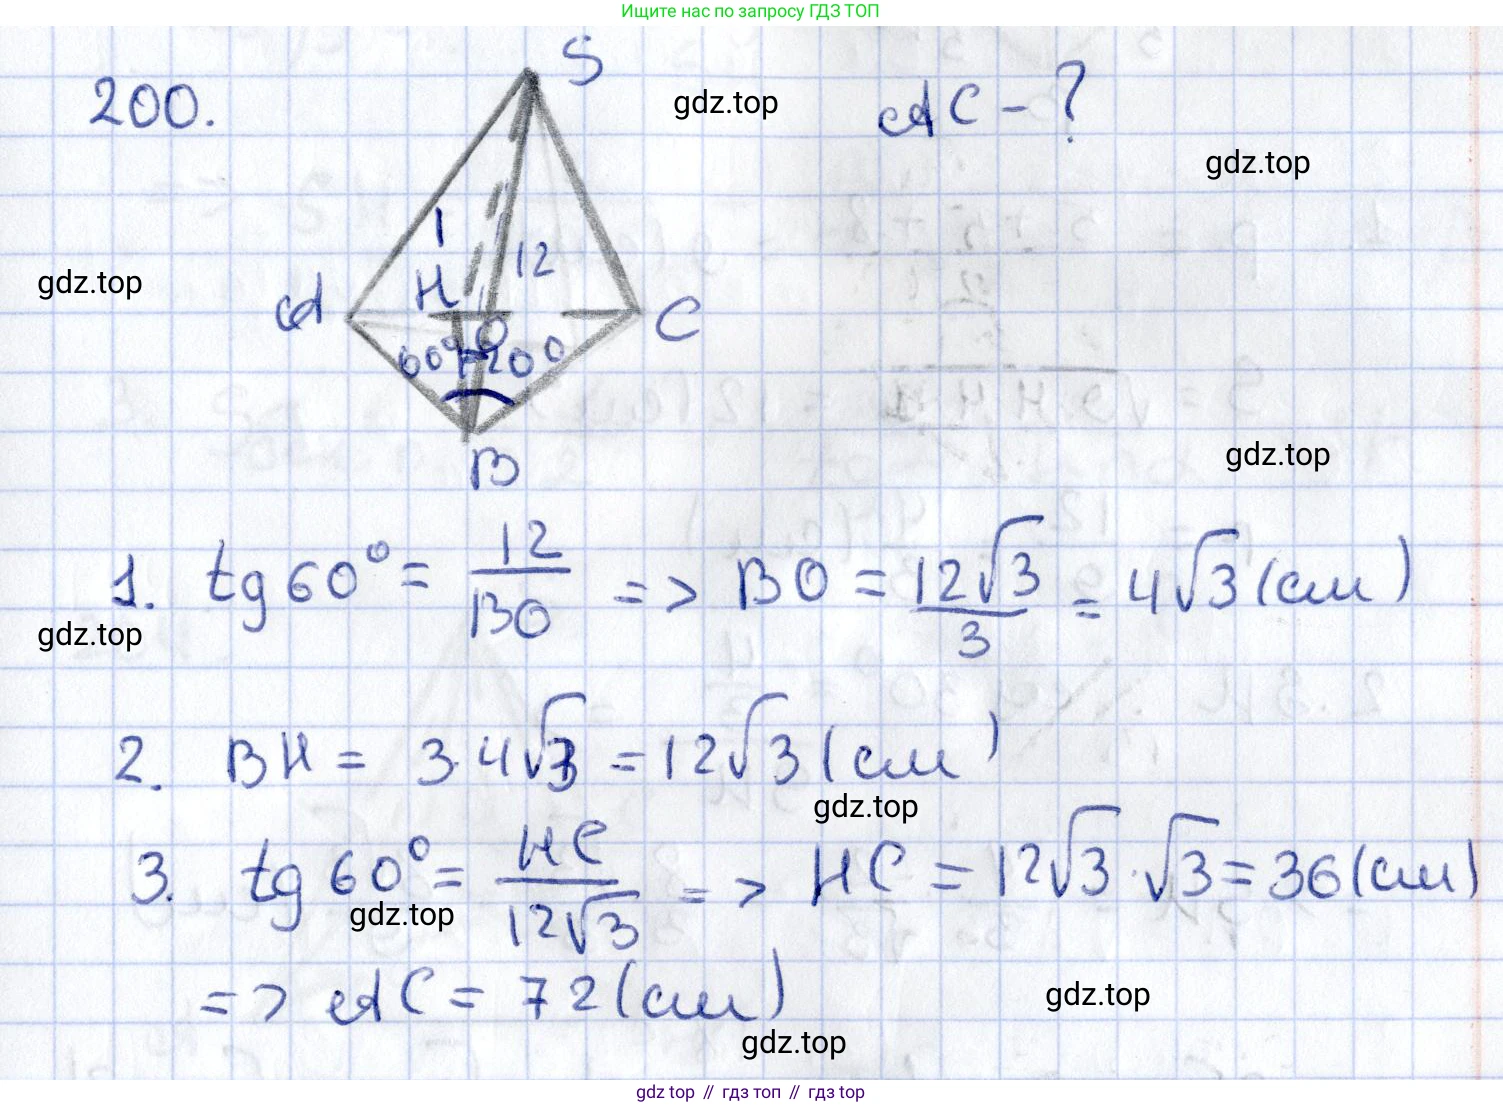 Ищите нас по запросу ГДЗ ТОП
S
200.
gdz.top
AC - ?
gdz.top
12
gdz.top
H
A
O
C
60° 120°
gdz.top
B
1. tg 60° = 12/BO => BO = 12√3/3 = 4√3 (см)
gdz.top
2. BH = 3·4√3 = 12√3 (см)
gdz.top
3. tg 60° = HC/12√3 => HC = 12√3·√3 = 36 (см)
gdz.top
=> AC = 72 (см)
gdz.top
gdz.top
gdz top // гдз топ // гдз top